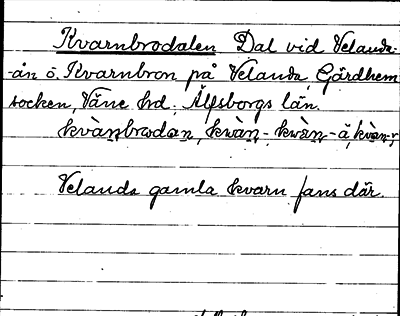 Kvarnbrodalen Dal vid Velanda-
-ån ö. Kvarnbron på Velanda, Gärdhem
socken, Väne hd. Älfsborgs län.
kvànbrodan, kwàn-, kwàn-å, kvàn-,
Velanda gamla kvarn fans där.